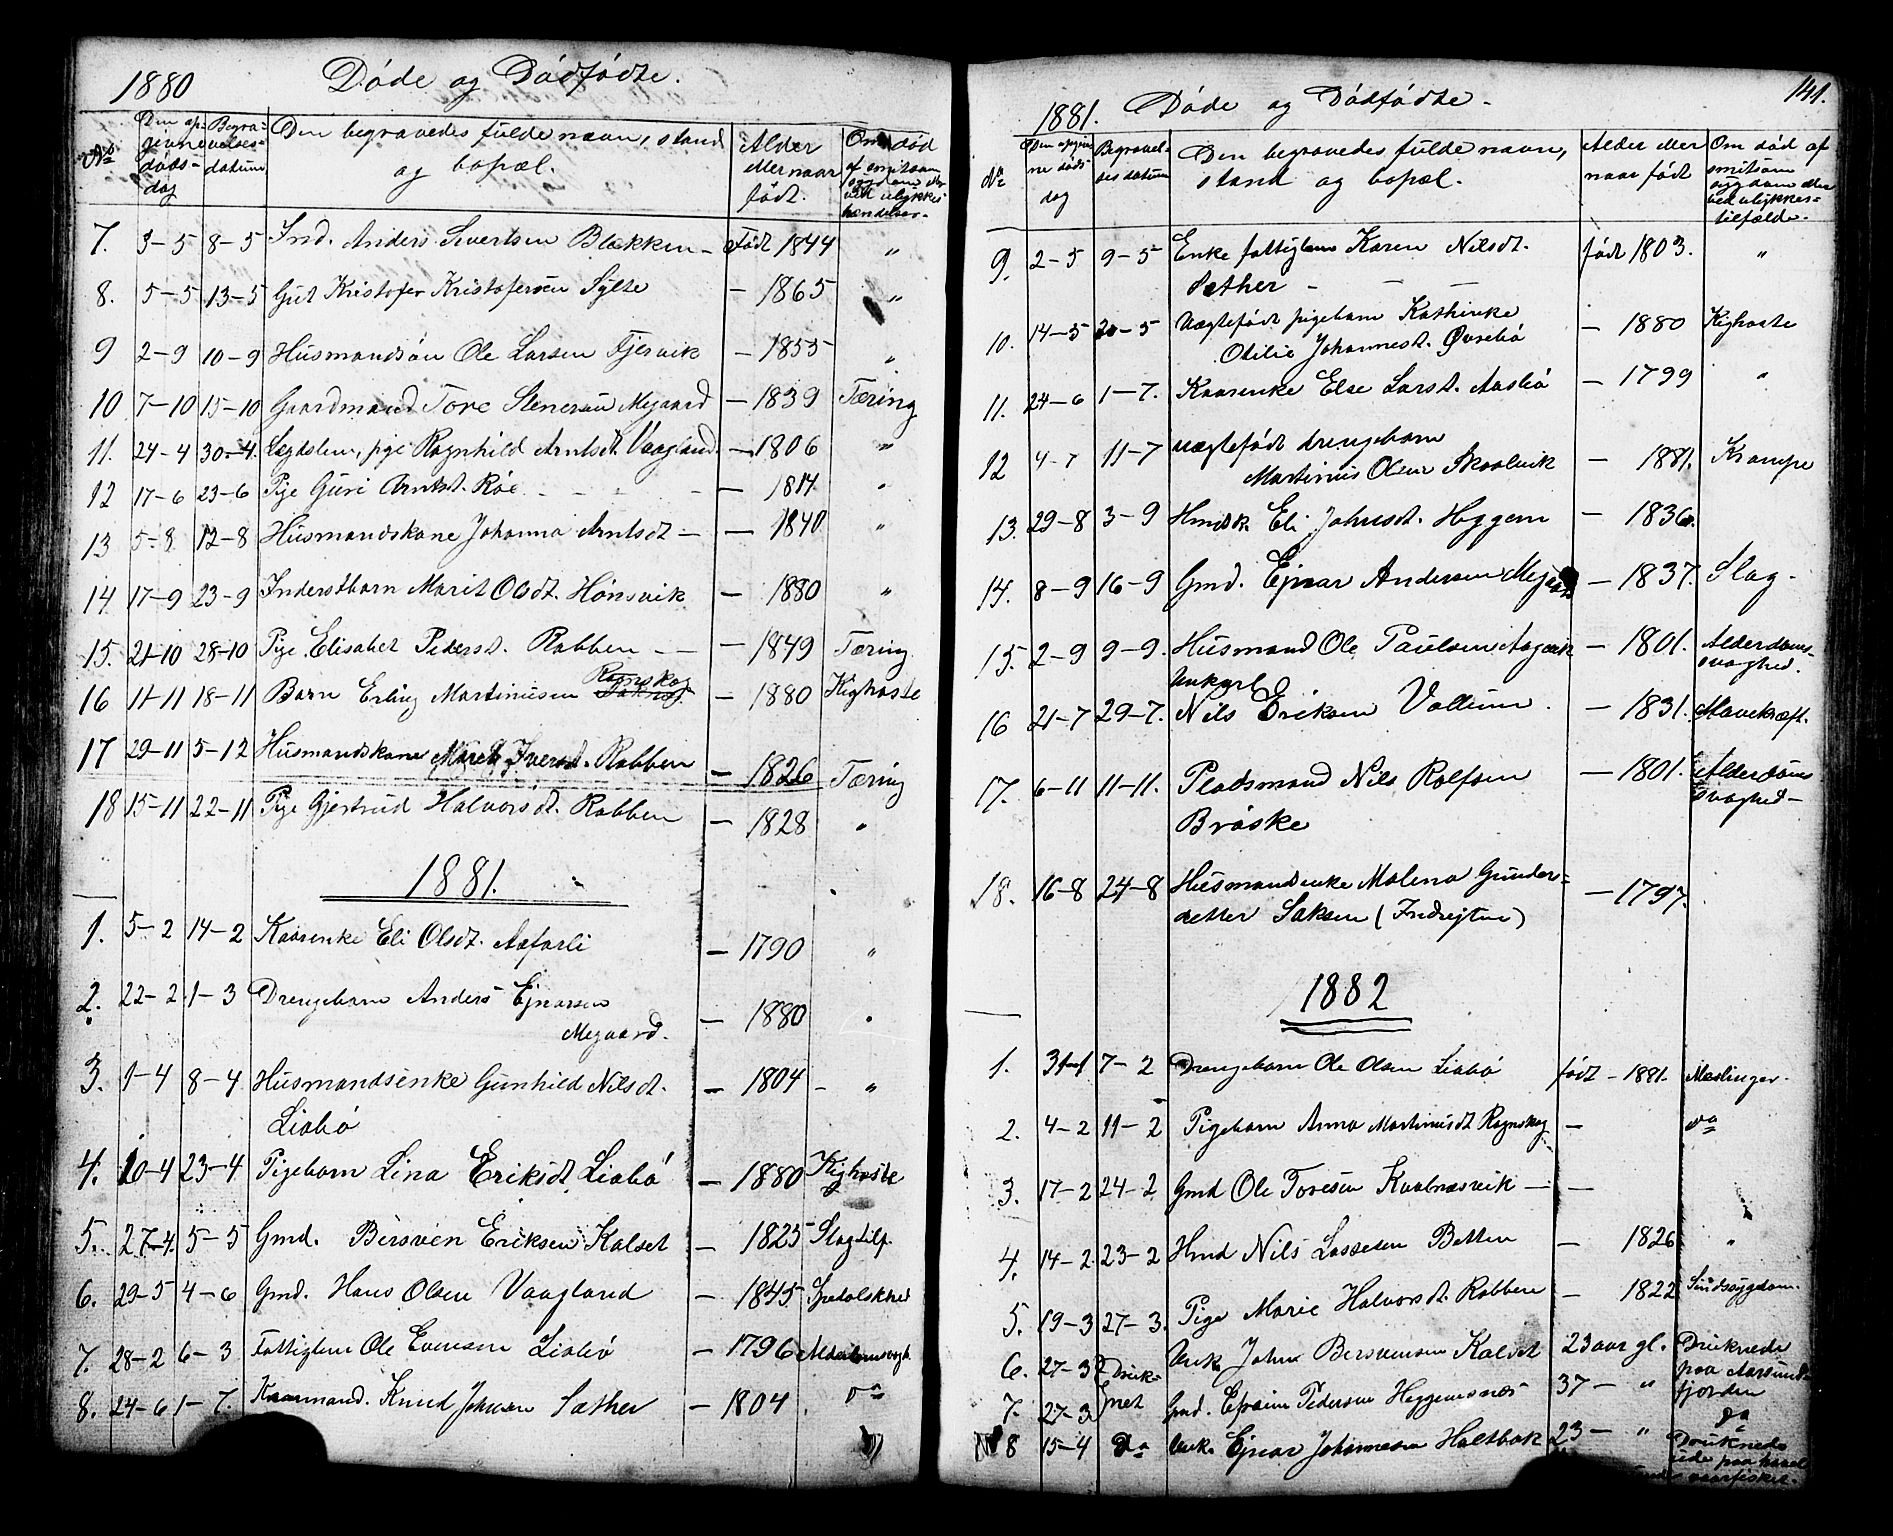 1880 Døde og Dødfødte.
No Den op- givne døds- dag Begra- velses- datum Den begravedes fulde navn, stand og bopæl. Alder eller naar født. Om død af smitsom sygdom eller ved ulykkes hændelser.
7. 3-5 8-5 Ind. Anders Sivertsen Blekken - Født 1844 "
8. 5-5 13-5 Gut Kristofer Kristofersen Sylte - 1865 "
9 2-9 10-9 Husmandsøn Ole Larsen Fjervik - 1855 "
10 7-10 15-10 Gaardmand Tore Stenersen Megaard - 1839 Tæring
11. 24-4 30-4. Lægdslem, pige Ragnhild Arntsdt. Vaagland. - 1806 "
12 17-6 23-6 Pige Guri Arntsd. Røe - - - - 1814 "
13 5-8 12-8 Husmandskone Johanna Arntsdt - - 1840 "
14 17-9 23-9 Inderstbarn Marit Olsdt. Hønsvik - 1880 "
15. 21-10 28-10 Pige Elisabet Pedersd. Rabben - - - 1849 Tæring.
16 11-11 18-11 Barn Erling Martinusen Rognskog - 1880 Kighoste
17 29-11 5-12 Husmandskone Marit Iversd. Rabben - 1826 Tæring
18 15-11 22-11 Pige Gjertrud Halvorsdt. Rabben - 1828 "
1881.
1. 5-2 14-2 Kaarenke Eli Olsdt. Aafarli - 1790 "
2. 22-2 1-3 Drengebarn Anders Ejnarsen
Megaard. - 1880 "
3. 1-4 8-4 Husmandsenke Gunhild Nilsdt. - 1804 - "
Liabø
4. 10-4 23-4 Pigebarn Lina Eriksdt. Liabø - 1880 Kighoste
5. 27-4. 5-5 Gmd. Bersven Eriksen Kalset - 1825 Slagtilf.
6. 29-5 4-6 Gmd. Hans Olsen Vaagland - 1845
7. 28-2 6-3 Fattiglem Ole Evensen Liabø - 1796 Alderdomssvagh.
8. 24-6 1-7. Kaarmand. Knud Johnsen Sæther - 1804. do
141.
1881. Døde og Dødfødte -
No Den opgiv- ne døds dag Begravel- ses datum Den begravedes fulde navn, stand og bopæl. Alder eller naar født Om død af smitsom sygdom eller ved ulykkes- tilfælde.
9. 2-5 9-5 Enke fattiglem Karen Nilsdt. født 1803. "
Sæther - - -
10. 14-5 20-5 Uægtefødt pigebarn Kathinke - 1880 Kighoste
Otilie Johannesd. Øvrebø
11. 24-6 1-7. Kaarenke Else Larsd. Aasbø - 1799 "
12 4-7 11-7 uægtefødt drengebarn
Martinius Olsen Skaalvik - 1881. Krampe
13. 29-8 3-9 Hmdsk. Eli Johnsdt. Heggem - 1836.
14. 8-9 16-9 Gmd. Ejnar Andersen Megaard - 1837. Slag -
15. 2-9 9-9. Husmand Ole Paulsen Aasvik - 1801. Alderdoms- svaghed.
Unkarl
16 21-7 29-7. Nils Eriksen Vollum. - 1831. Mavekræft.
17. 6-11 11-11. Pladsmand Nils Rolfsen - 1801. Alderdoms svaghed -
Brøske
18. 16-8 24-8 Husmandsenke Malena Gunders= - 1797.
detter Saksen (Indrejten)
1882
1. 31-1 7-2 Drengebarn Ole Olsen Liabø født - 1881. Mæslinger.
2. 4-2 11-2 Pigebarn Anna Martinusdt Rognskog - do
3. 17-2 24-2 Gmd Ole Toresen Kvalnæsvik - -
4. 14-2. 23-2 Hmd Nils Lassesen Botten - 1826 "
5. 19-3 27-3. Pige Marie Halvorsdt. Rabben - 1822 Sindssygdom.
6. 27-3 Druk- Unk. John Bersvensen Kalset 23 aar gl. Druknede
7. 27-3 net Gmd. Efraim Pedersen Heggemsnes 37 - " paa Aarsunds- fjorden
do
8 15-4 do Unk. Ejnar Johannesen Holtbak 23 - " Druknede
ude paa havet
under vaarfisket.